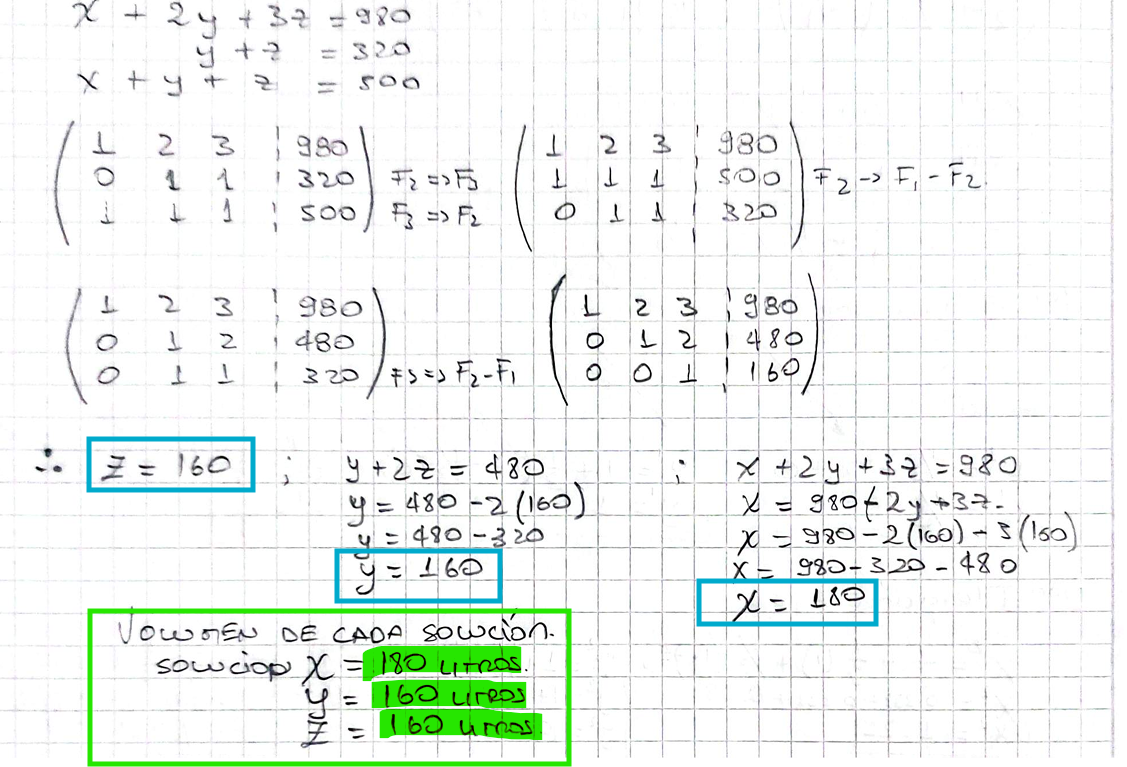 x + 2y + 3z = 980
y + z = 320
x + y + z = 500
1 2 3 | 980
0 1 1 | 320 F2 => F3
1 1 1 | 500 F3 => F2
1 2 3 | 980
1 1 1 | 500 F2 -> F1 - F2.
0 1 1 | 320
1 2 3 | 980
0 1 2 | 480
0 1 1 | 320 F3 => F2 - F1
1 2 3 | 980
0 1 2 | 480
0 0 1 | 160
∴ z = 160 ;
y + 2z = 480 ;
y = 480 - 2(160)
y = 480 - 320
y = 160
x + 2y + 3z = 980
x = 980 - 2y + 3z.
x = 980 - 2(160) - 3(160)
x = 980 - 320 - 480
x = 180
VOLUMEN DE CADA SOLUCIÓN.
SOLUCION X = 180 LITROS.
y = 160 LITROS
Z = 160 LITROS.